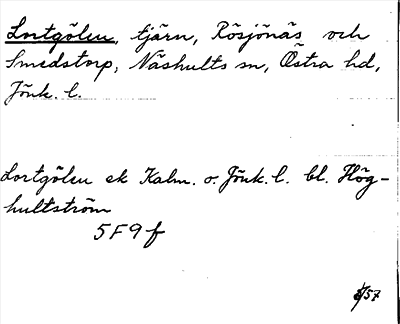 Lortgölen, tjärn, Rösjönäs och
Smedstorp, Näshults sn, Östra hd,
Jönk. l.
Lortgölen ek Kalm. o. Jönk. l. bl. Hög-
hultström
5F9f
57